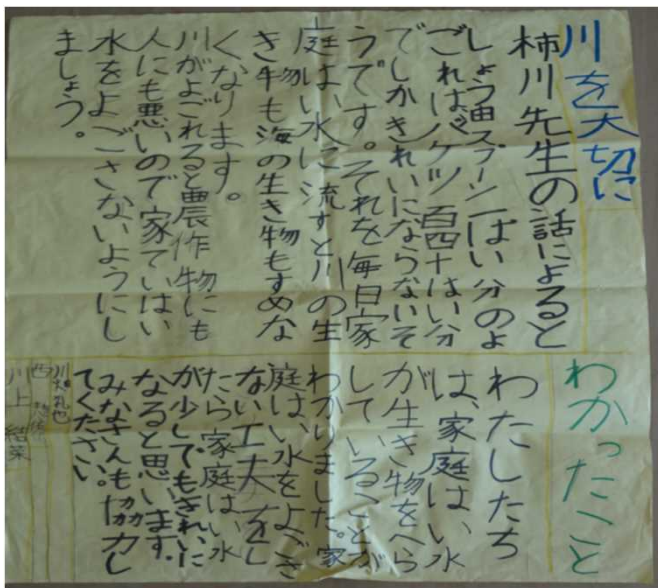 川を大切に
柿川先生の話によると
しょう油スプーン一ぱい分のよ
ごれはバケツ百四十はい分
でしかきれいにならないそ
うです。それを毎日家
庭はい水に流すと川の生
き物も海の生き物もすめな
くなります。
川がよごれると農作物にも
人にも悪いので家ていはい
水をよごさないようにし
ましょう。
わかったこと
わたしたち
は、家庭はい水
が生き物をへら
していることが
わかりました。家
庭はい水をよごさ
ない工夫をし
たら家庭はい水
が少しでもきれいに
なると思います。
みなさんも協力し
てください。
西
川上結菜